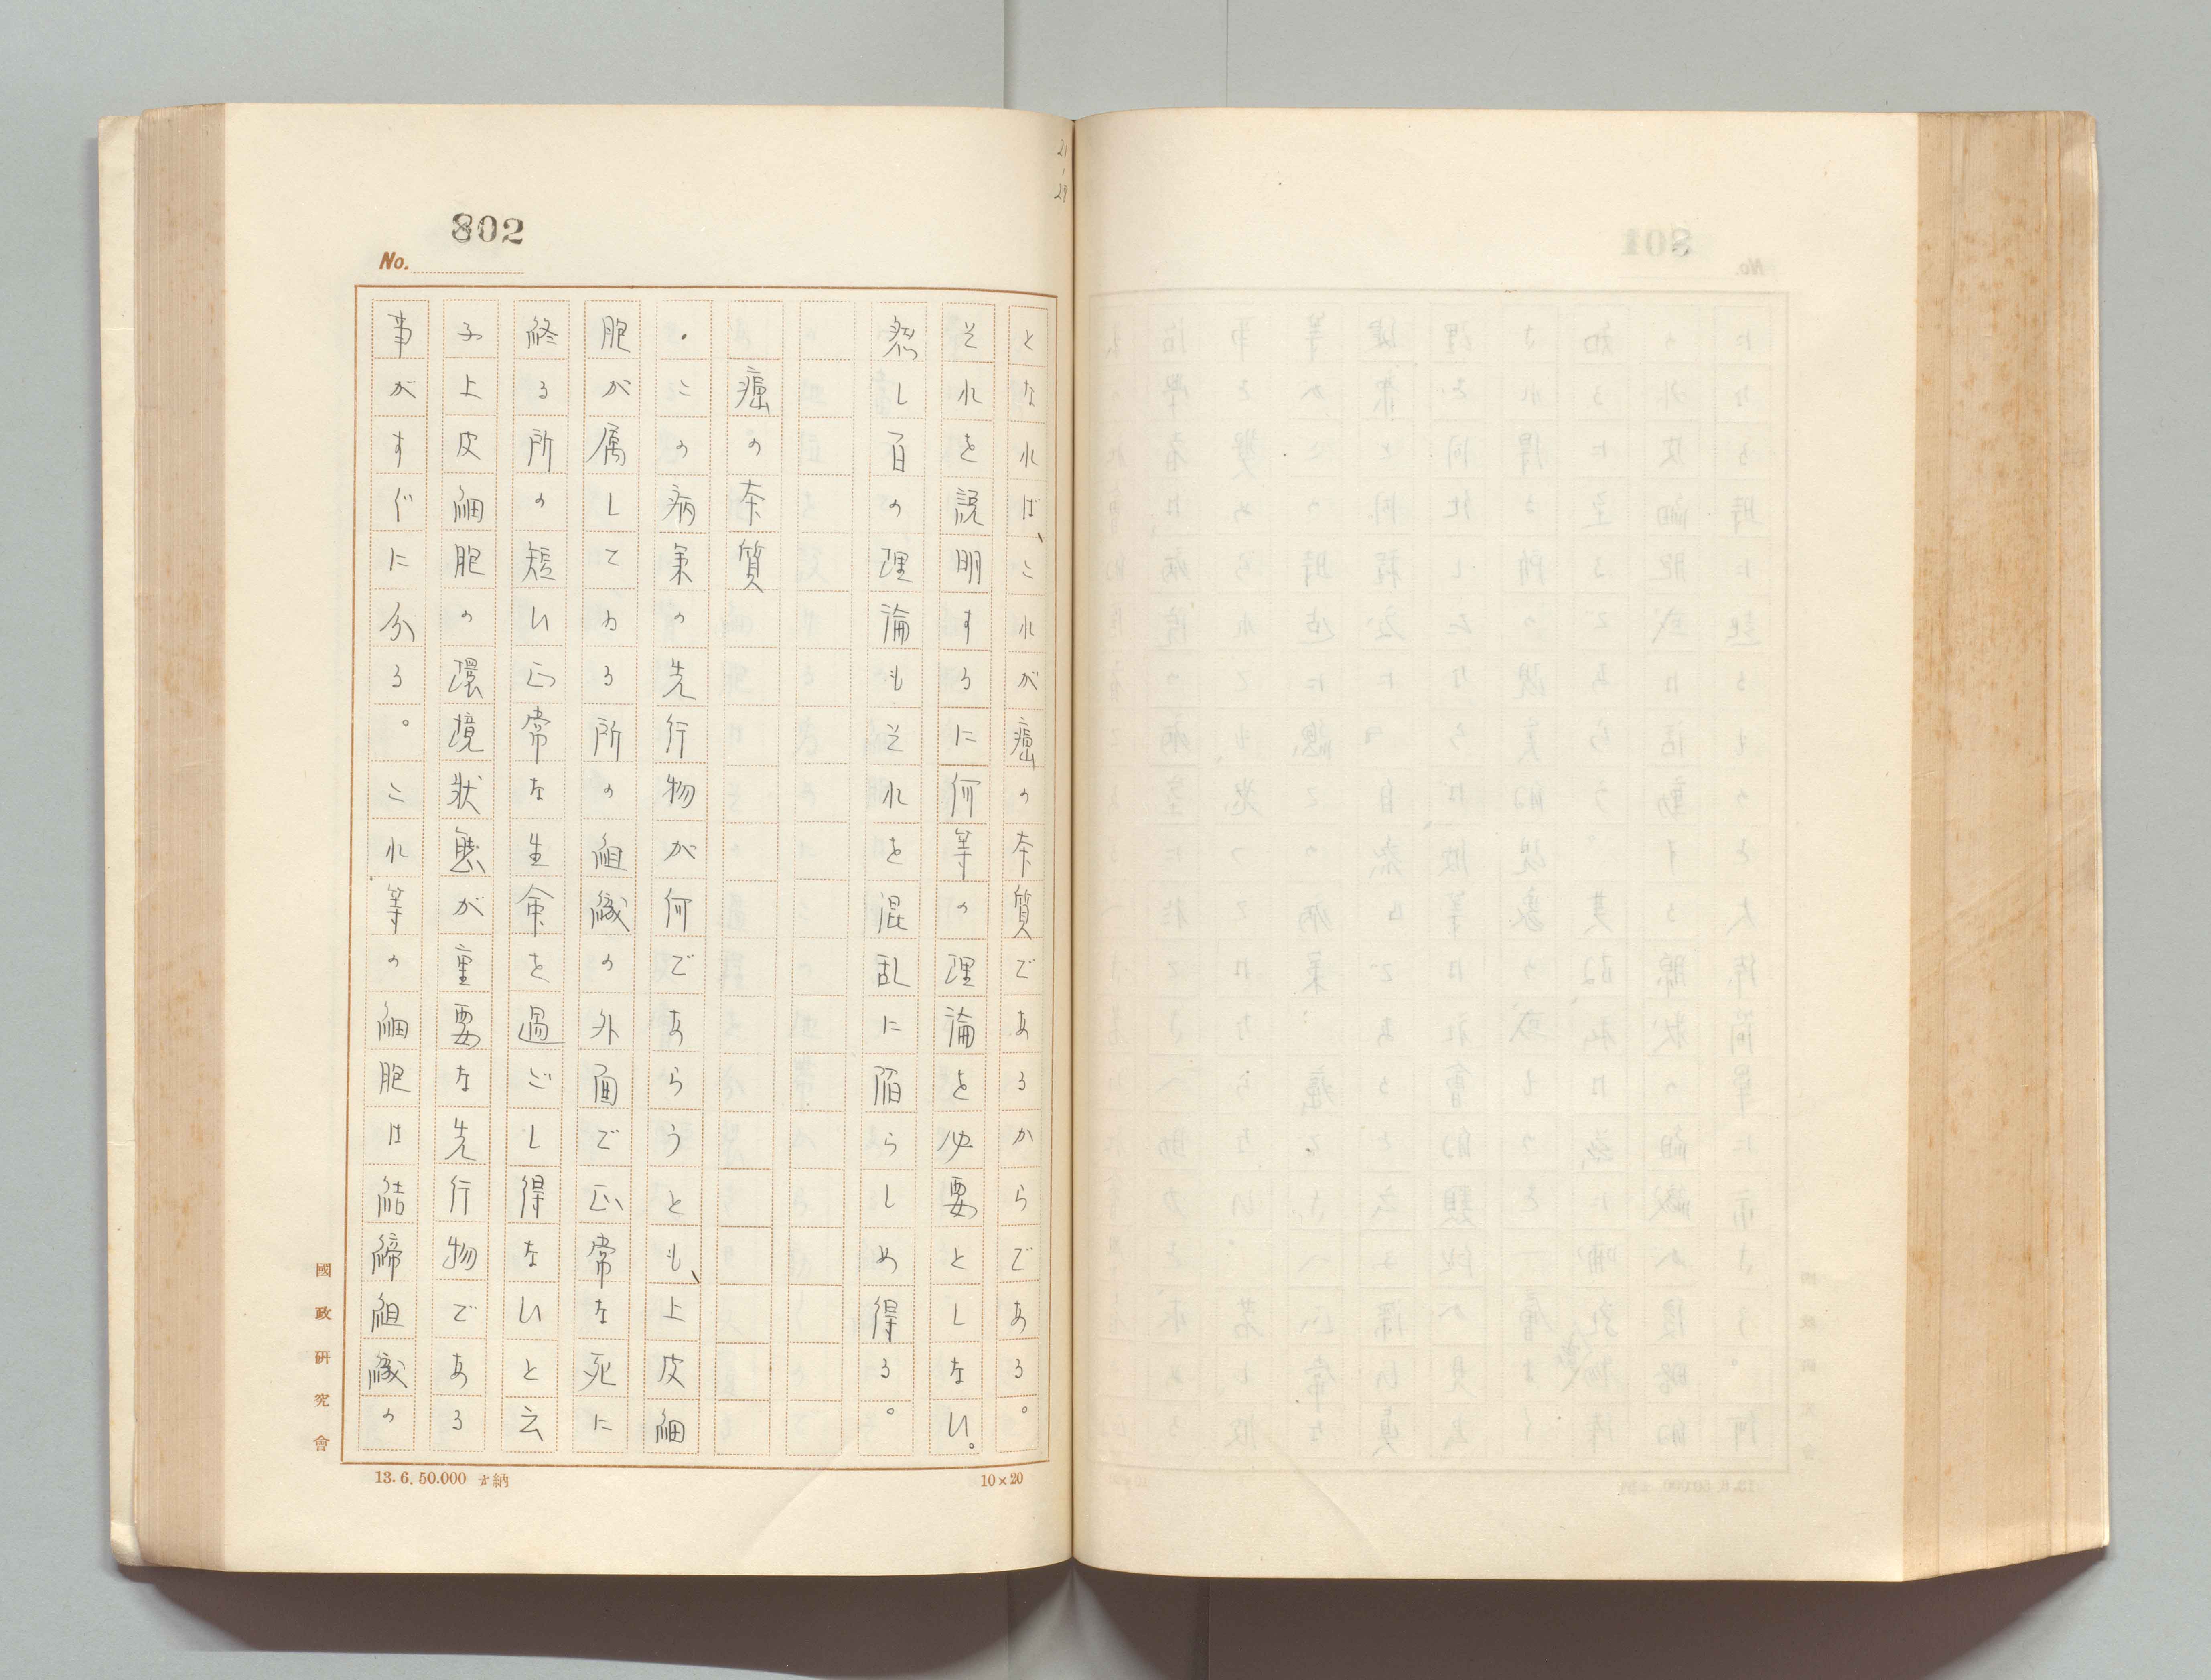 802
No.
となれば、これが癌の本質であるからである。
それを説明するに何等の理論を必要としない。
然し百の理論もそれを混乱に陥らしめ得る。
癌の本質
・この病気の先行物が何であらうとも、上皮細
胞が属してゐる所の組織の外面で正常な死に
終る所の短い正常な生命を過ごし得ないと云
ふ上皮細胞の環境状態が重要な先行物である
事がすぐに分る。これ等の細胞は結締組織の
國政研究會
13.6.50.000
10×20